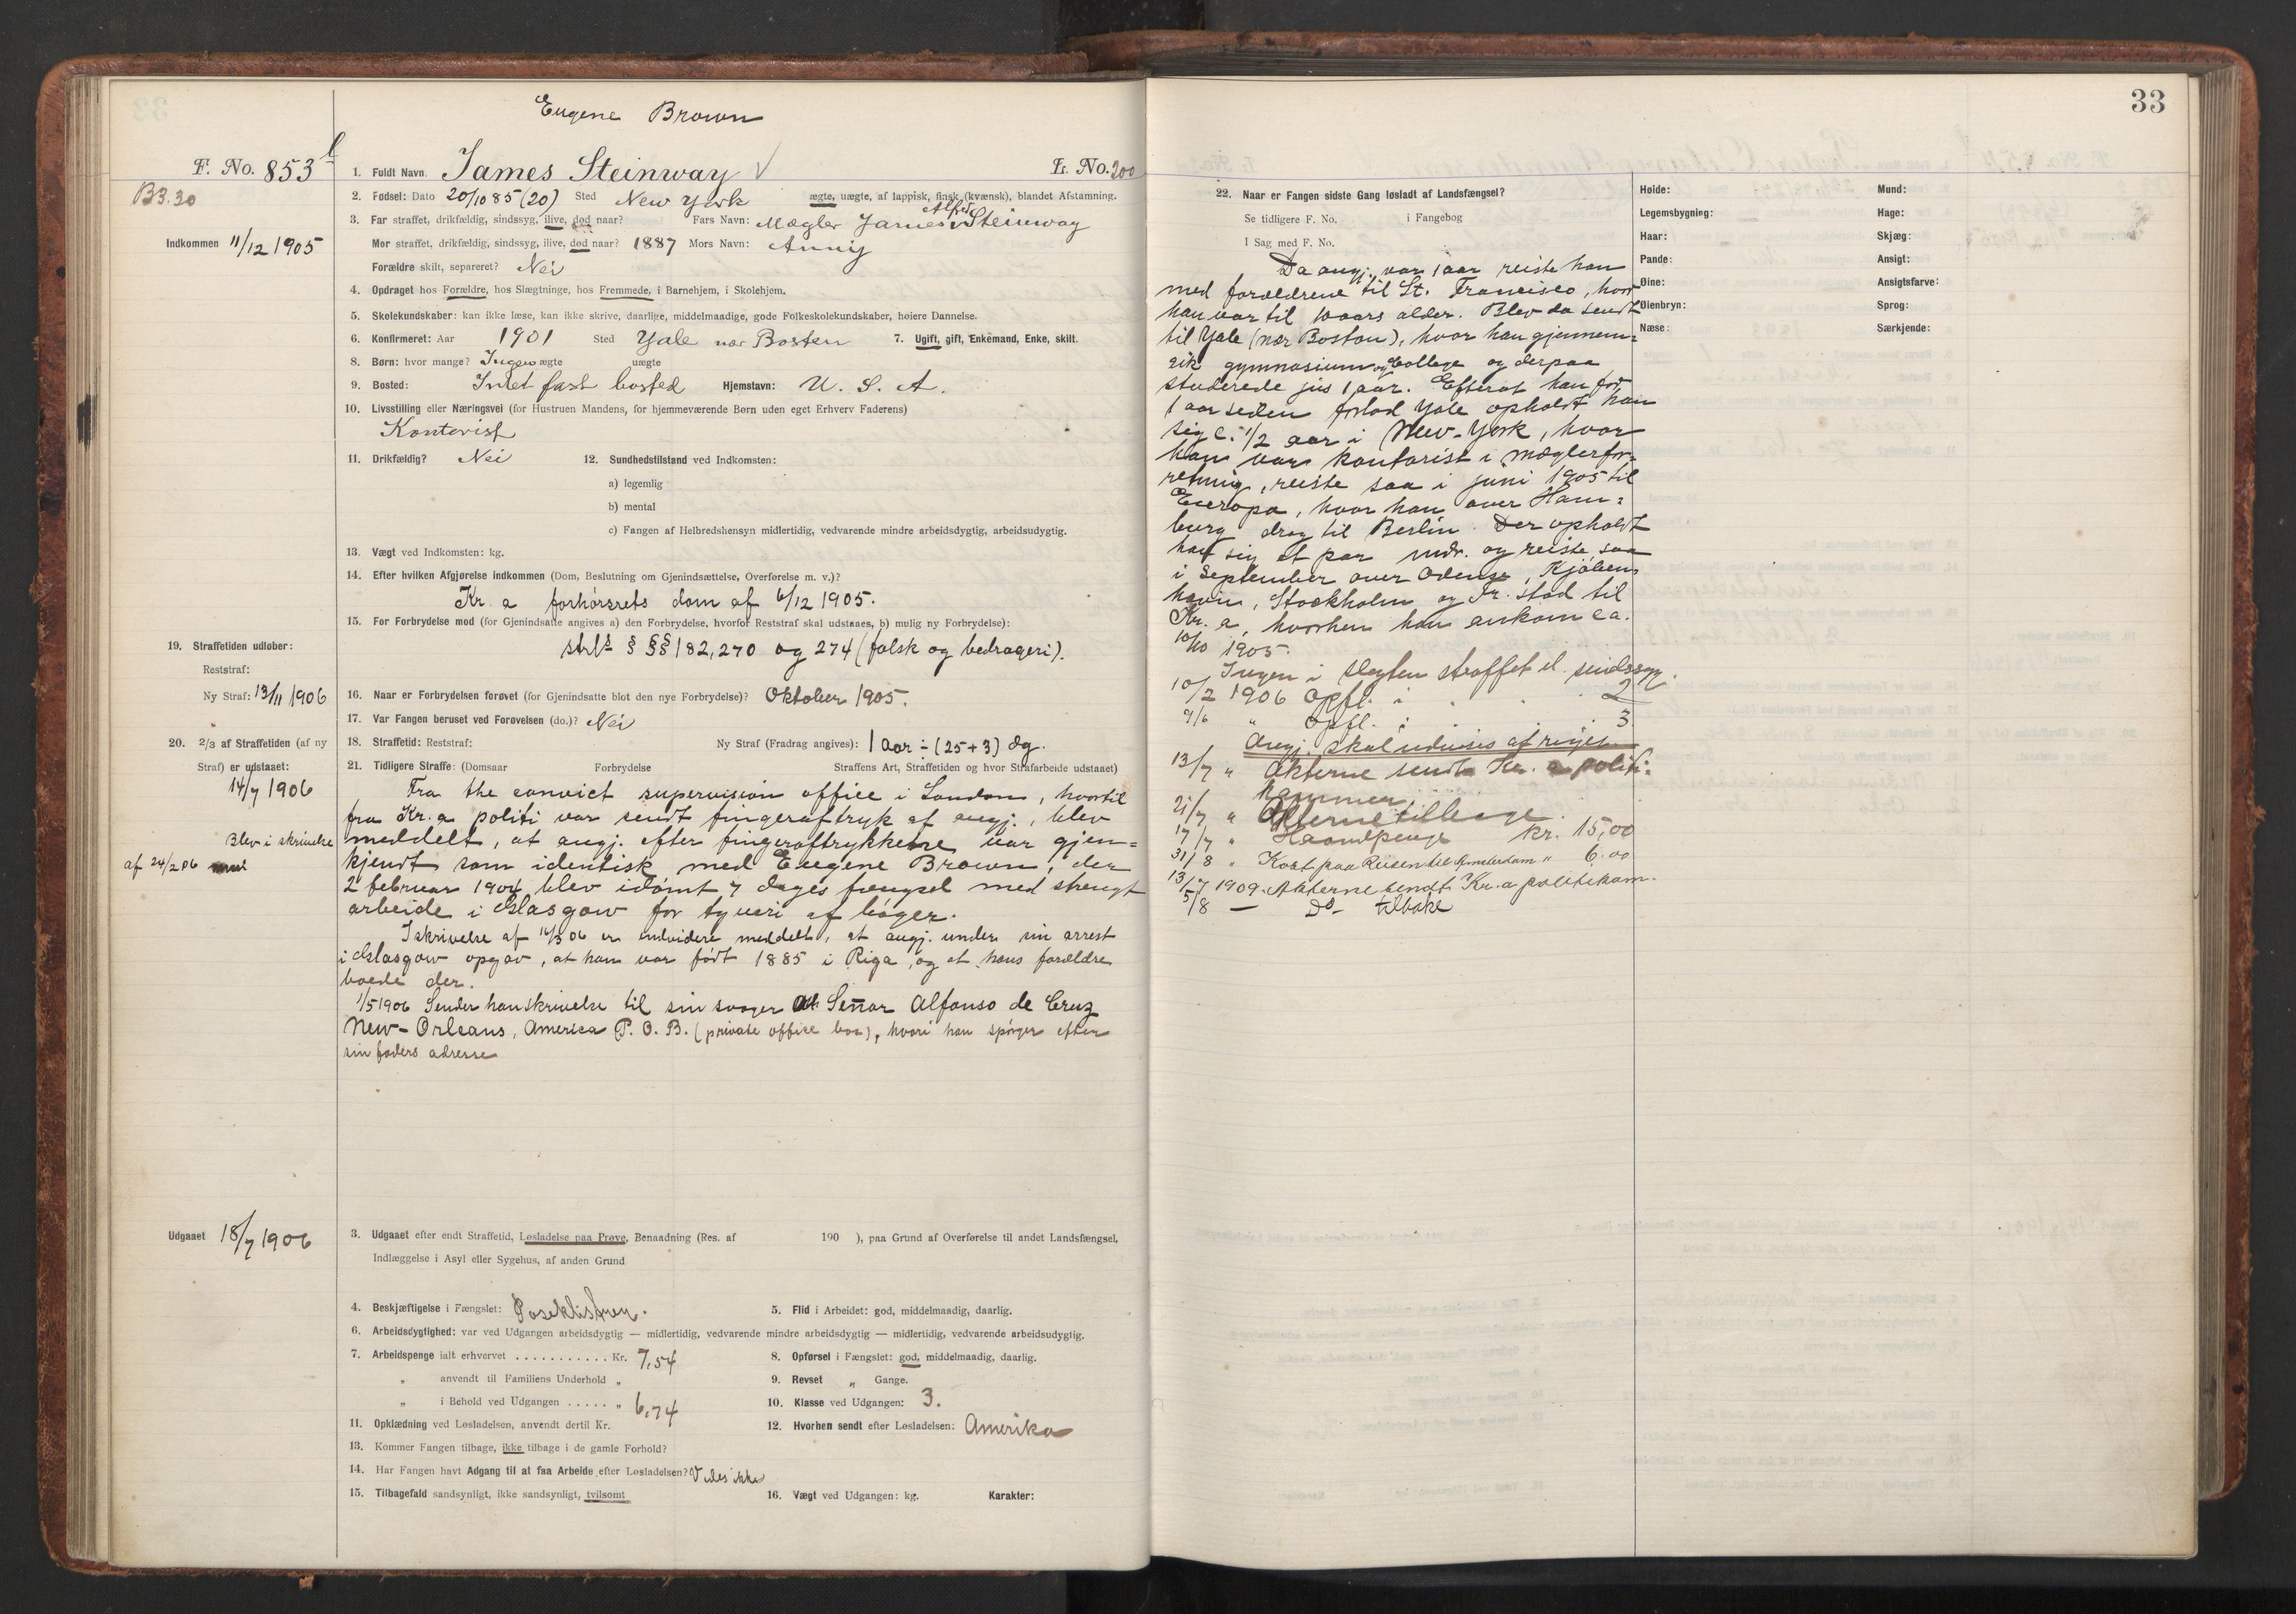 Eugene Brown
F. No. 853 b
B3.30
1. Fuldt Navn James Steinway
L. No. 200
2. Fødsel: Dato 20/10 85 (20) Sted New York ægte, uægte, af lappisk, finsk (kvænsk), blandet Afstamning.
3. Far straffet, drikfældig, sindssyg, ilive, død naar? Fars Navn: Mægler James Alfred Steinway
Indkommen 11/12 1905
Mor straffet, drikfældig, sindssyg, ilive, død naar? 1887 Mors Navn: Anny
Forældre skilt, separeret? Nei
4. Opdraget hos Forældre, hos Slægtninge, hos Fremmede, i Barnehjem, i Skolehjem.
5. Skolekundskaber: kan ikke læse, kan ikke skrive, daarlige, middelmaadige, gode Folkeskolekundskaber, høiere Dannelse.
6. Konfirmeret: Aar 1901 Sted Yale nær Boston 7. Ugift, gift, Enkemand, Enke, skilt.
8. Børn: hvor mange? Ingen ægte uægte
9. Bosted: Intet fast bosted Hjemstavn: U. S. A.
10. Livsstilling eller Næringsvei (for Hustruen Mandens, for hjemmeværende Børn uden eget Erhverv Faderens)
Kontorist
11. Drikfældig? Nei 12. Sundhedstilstand ved Indkomsten:
a) legemlig
b) mental
c) Fangen af Helbredshensyn midlertidig, vedvarende mindre arbeidsdygtig, arbeidsudygtig.
13. Vægt ved Indkomsten: kg.
14. Efter hvilken Afgjørelse indkommen (Dom, Beslutning om Gjenindsættelse, Overførelse m. v.)?
Kr. a forhørsrets dom af 6/12 1905.
15. For Forbrydelse mod (for Gjenindsatte angives a) den Forbrydelse, hvorfor Reststraf skal udstaaes, b) mulig ny Forbrydelse):
strl's §§ 182, 270 og 274 (falsk og bedrageri).
19. Straffetiden udløber:
Reststraf:
Ny Straf: 13/11 1906
16. Naar er Forbrydelsen forøvet (for Gjenindsatte blot den nye Forbrydelse)? Oktober 1905.
17. Var Fangen beruset ved Forøvelsen (do.)? Nei
20. 2/3 af Straffetiden (af ny
Straf) er udstaaet:
14/7 1906
18. Straffetid: Reststraf: Ny Straf (Fradrag angives): 1 aar ÷ (25+3) dg.
21. Tidligere Straffe: (Domsaar Forbrydelse Straffens Art, Straffetiden og hvor Strafarbeide udstaaet)
Fra the convict supervision office i London, hvortil
fra Kr. a politi var sendt fingeraftryk af angj., blev
Blev i skrivelse
af 24/2 06
meddelt, at angj. efter fingeraftrykkene var gjen=
kjendt som identisk med Eugene Brown, der
2 februar 1904 blev idømt 7 dages fængsel med strengt
arbeide i Glasgow for tyveri af bøger.
I skrivelse af 16/3 06 er endvidere meddelt, at angj. under sin arrest
i Glasgow opgav, at han var født 1885 i Riga, og at hans forældre
boede der.
1/5 1906 Sender han skrivelse til sin svoger Señor Alfonso de Cruz
New-Orleans, America P. O. B. (private office box), hvori han spørger efter
sin faders adresse
Udgaaet 18/7 1906
3. Udgaaet efter endt Straffetid, Løsladelse paa Prøve, Benaadning (Res. af 190 ), paa Grund af Overførelse til andet Landsfængsel,
Indlæggelse i Asyl eller Sygehus, af anden Grund
4. Beskjæftigelse i Fængslet: Poseklistren. 5. Flid i Arbeidet: god, middelmaadig, daarlig.
6. Arbeidsdygtighed: var ved Udgangen arbeidsdygtig — midlertidig, vedvarende mindre arbeidsdygtig — midlertidig, vedvarende arbeidsudygtig.
7. Arbeidspenge ialt erhvervet ........... Kr. 7,54 8. Opførsel i Fængslet: god, middelmaadig, daarlig.
„ anvendt til Familiens Underhold „ 9. Revset „ Gange.
„ i Behold ved Udgangen ..... „ 6,74 10. Klasse ved Udgangen: 3.
11. Opklædning ved Løsladelsen, anvendt dertil Kr. 12. Hvorhen sendt efter Løsladelsen: Amerika
13. Kommer Fangen tilbage, ikke tilbage i de gamle Forhold?
14. Har Fangen havt Adgang til at faa Arbeide efter Løsladelsen? Vides ikke
15. Tilbagefald sandsynligt, ikke sandsynligt, tvilsomt 16. Vægt ved Udgangen: kg. Karakter:
33
22. Naar er Fangen sidste Gang løsladt af Landsfængsel?
Se tidligere F. No. i Fangebog
I Sag med F. No.
Høide: Mund:
Legemsbygning: Hage:
Haar: Skjæg:
Pande: Ansigt:
Øine: Ansigtsfarve:
Øienbryn: Sprog:
Næse: Særkjende:
Da angj. var 1 aar reiste han
med forældrene til St. Francisco, hvor
han var til 10 aars alder. Blev da sendt
til Yale (nær Boston), hvor han gjennem=
gik gymnasium og College og derpaa
studerede jus 1 aar. Efterat han for
1 aar siden forlod Yale opholdt han
sig c. 1/2 aar i New-York, hvor
han var kontorist i mæglerfor=
retning, reiste saa i juni 1905 til
Europa, hvor han over Ham=
burg drog til Berlin. Der opholdt
han sig et par mdr. og reiste saa
i September over Odense, Kjøben=
havn, Stockholm og Kr. stad til
Kr. a, hvorhen han ankom ca.
10/10 1905.
Ingen i slegten straffet el. sindssyg.
10/2 1906 Opfl. i . . 2
9/6 " Opfl. i 3
Angj. skal udvises af riget
13/7 " Akterne sendt Kr. a politi=
kammer.
21/7 " Akterne tilbage.
17/7 " Haandpenge kr. 15,00
31/8 " Kost paa Reisen til Amsterdam " 6.00
13/7 1909. Akterne sendt Kr. a politikam.
5/8 — Do - tilbake